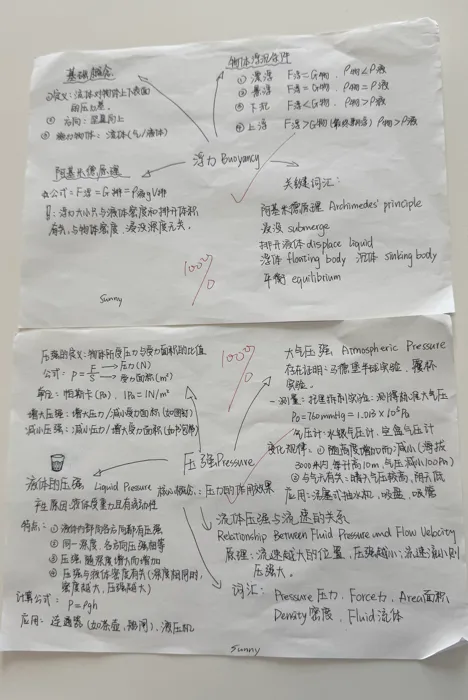 基础概念
①定义：流体对物体上下表面
的压力差
② 方向：竖直向上
③ 施力物体：流体（气/液体）
物体浮沉条件
① 漂浮 F浮=G物，ρ物<ρ液
② 悬浮 F浮=G物，ρ物=ρ液
③ 下沉 F浮<G物，ρ物>ρ液
④ 上浮 F浮>G物（最终漂浮）ρ物>ρ液
浮力 Buoyancy
阿基米德原理
公式：F浮=G排=ρ液gV排
浮力大小只与液体密度和排开体积
有关，与物体密度、浸没深度无关。
关键词汇：
阿基米德原理 Archimedes' principle
浸没 submerge
排开液体 displace liquid
浮体 floating body 沉体 sinking body
平衡 equilibrium
100%
Sunny
压强的定义：物体所受压力与受力面积的比值
公式：P=F/S →压力(N) →受力面积(m²)
单位：帕斯卡(Pa)，1Pa=1N/m²
增大压强：增大压力/减小受力面积
减小压强：减小压力/增大受力面积
100%
压强Pressure
核心概念：压力的作用效果
大气压强，Atmospheric Pressure
存在证明：马德堡半球实验，覆杯
实验。
测量：托里拆利实验：测得标准大气压
P₀=760mmHg=1.013×10⁵Pa
气压计：水银气压计，空盒气压计
变化规律：①随高度增加而减小（海拔
3000米内每升高10m，气压减小100Pa）
②与天气有关：晴天气压较高，阴天低
应用：活塞式抽水机，吸盘，吸管
液体的压强 Liquid Pressure
产生原因：液体受重力且有流动性
特点：① 液体内部向各方向都有压强
② 同一深度，各方向压强相等
③ 压强随深度增大而增加
④ 压强与液体密度有关（深度相同时，
密度越大，压强越大）
计算公式：P=ρgh
应用：连通器（如茶壶，船闸），液压机
流体压强与流速的关系
Relationship Between Fluid Pressure and Flow Velocity
原理：流速越大的位置，压强越小；流速小则
压强大。
词汇：Pressure 压力，Force力，Area面积，
Density密度，Fluid流体
Sunny